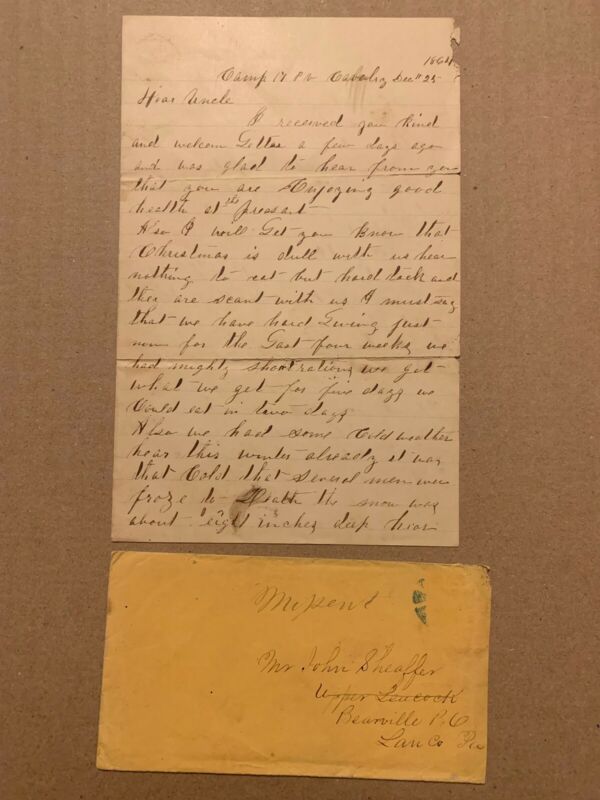 1864
Camp 17 P V Cavalry Dec" 25
Dear Uncle
I received your kind
and welcom Letter a few days ago
and was glad to hear from you
that you are Enjoying good
health at the pressant
Also I will Let you know that
Christmas is dull with us hear
nothing to eat but hard tack and
they are scant with us I must say
that we have hard Living just
now for the Last four weeks we
had mighty short rations we got
what we get for five days we
Could eat in two days
Also we had some Cold weather
hear this winter already it was
that Cold that several men were
froze to Death the snow was
about eight inches deep hear
Missent
Mr John Sheaffer
Upper Leacock
Bearville P.O
Lan Co Pa